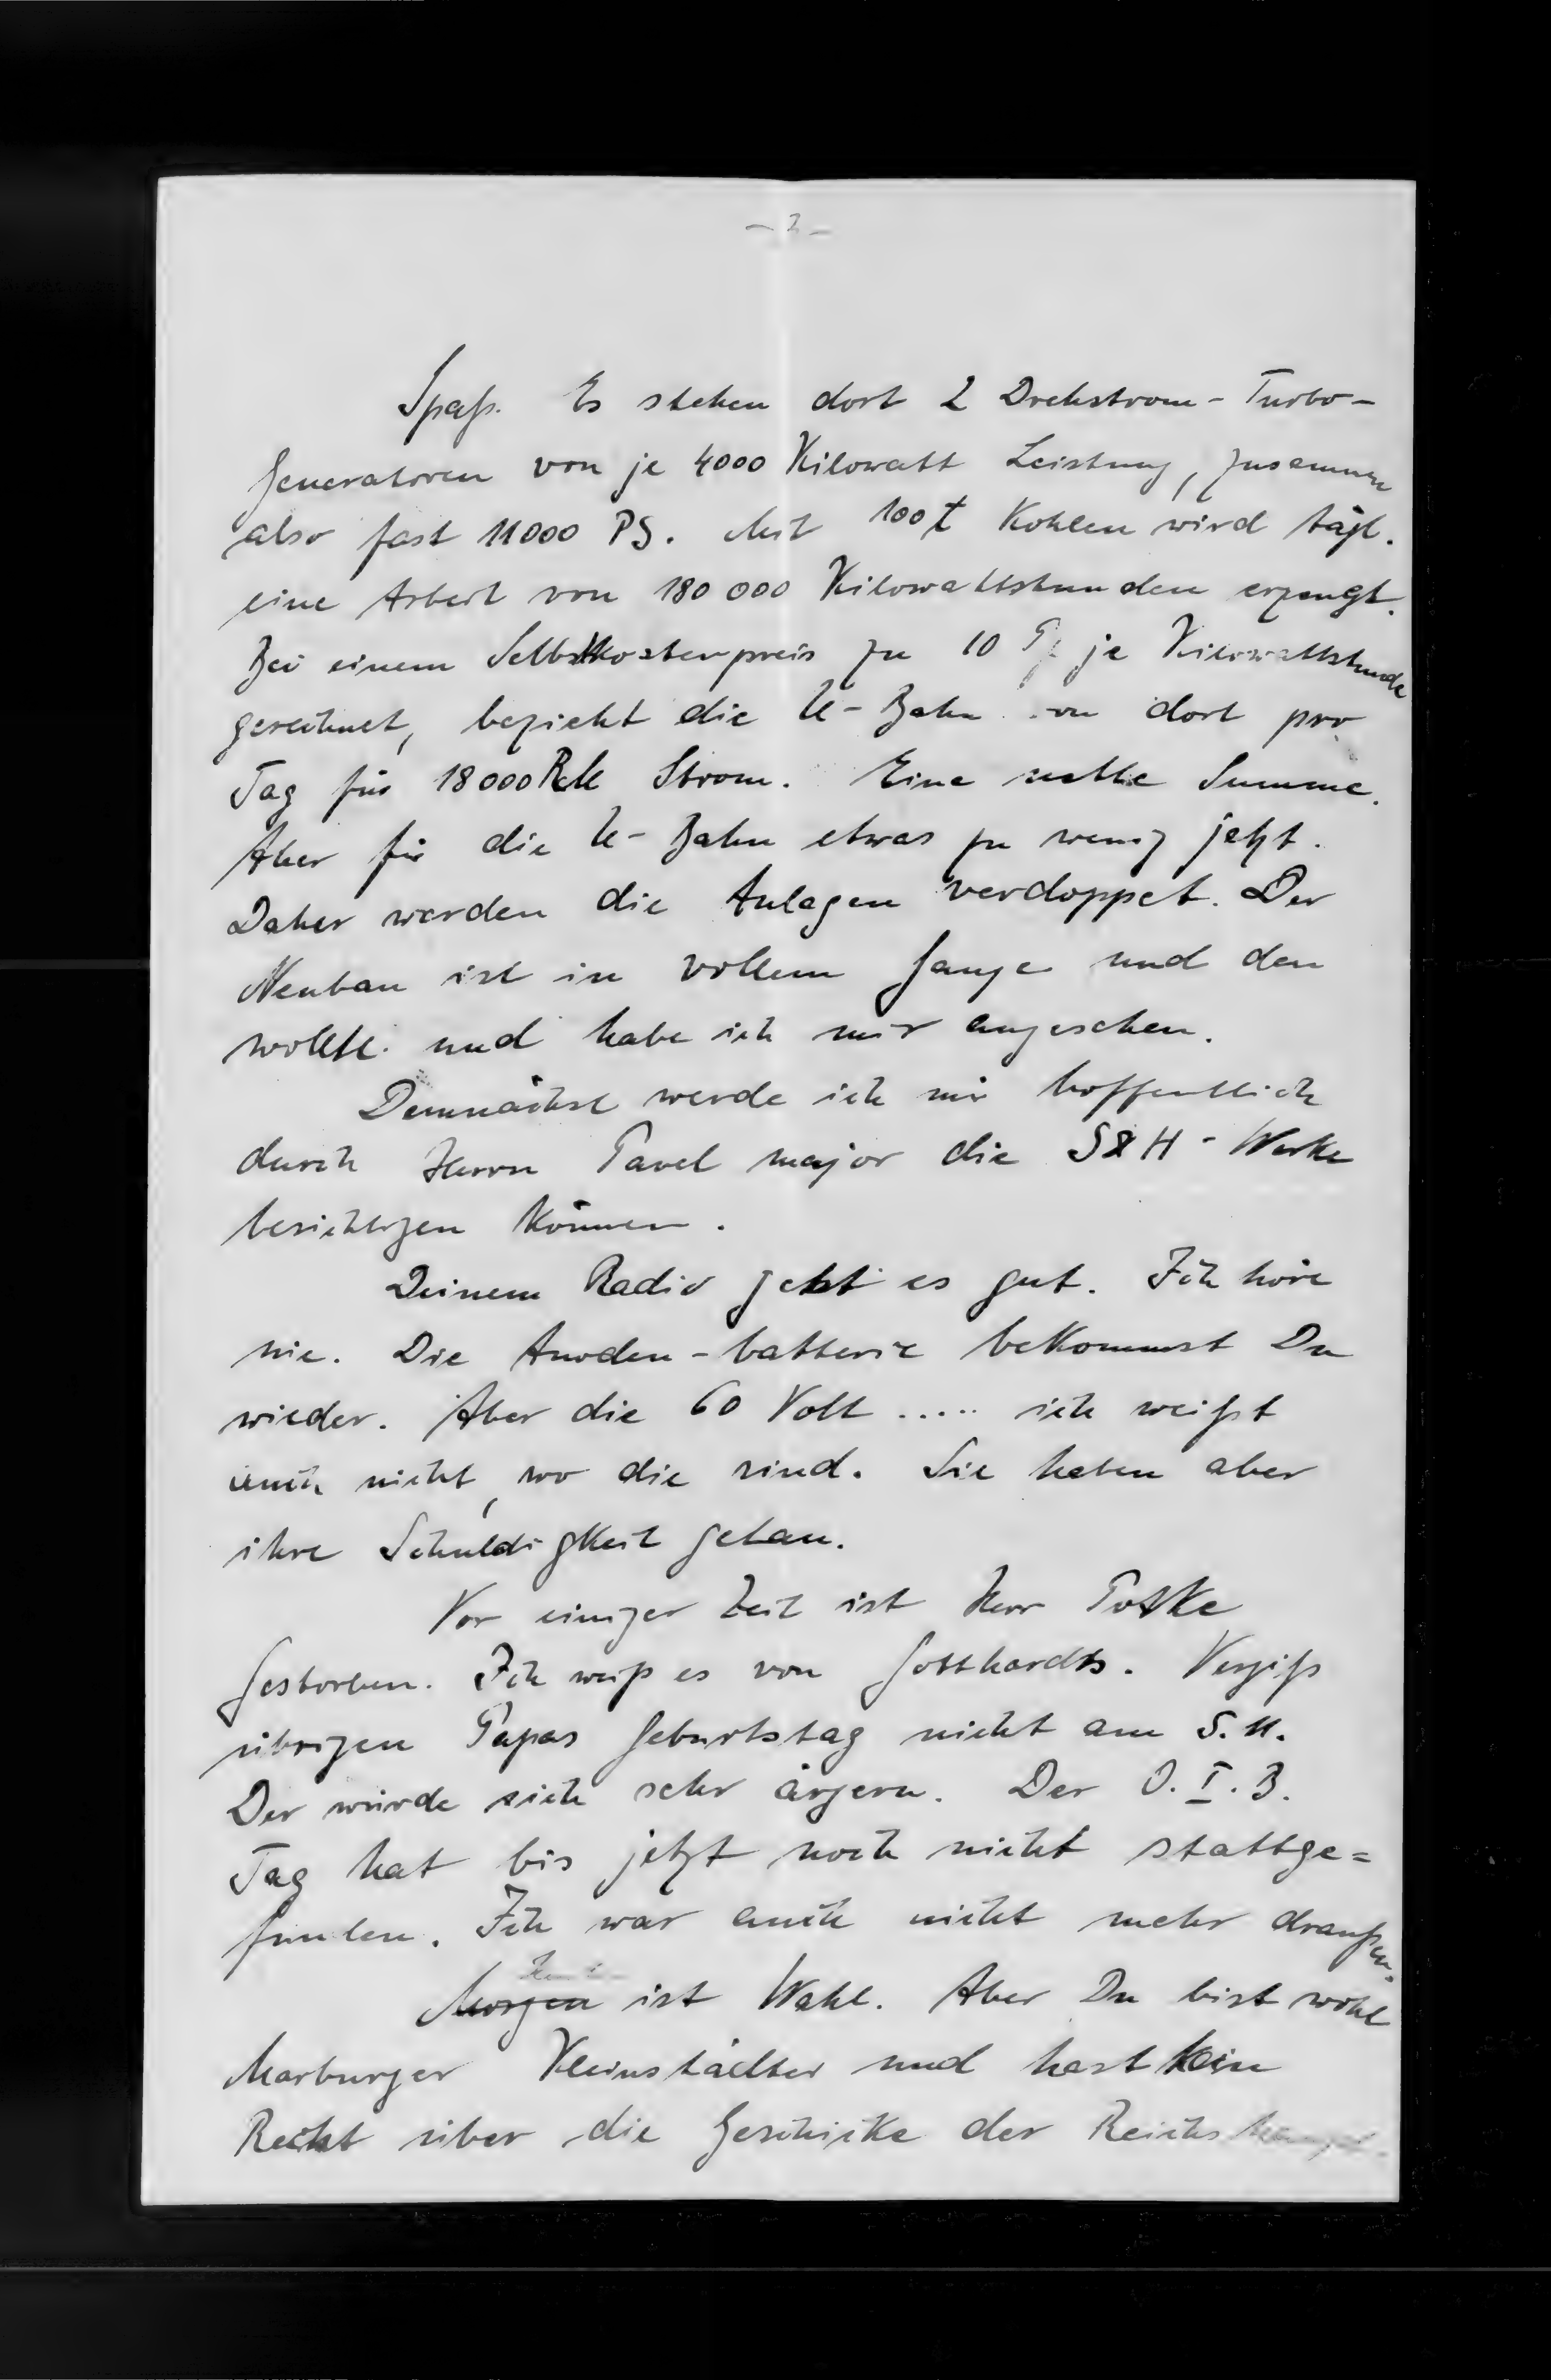 - 2 -
Spaß. Es stehen dort 2 Drehstrom-Turbo-
Generatoren von je 4000 Kilowatt Leistung, zusammen
also fast 11000 PS. Mit 100 t Kohlen wird tägl.
eine Arbeit von 180 000 Kilowattstunden erzeugt.
Bei einem Selbstkostenpreis zu 10 je Kilowattstunde
gerechnet, bezieht die U-Bahn von dort pro
Tag für 18000 RM Strom. Eine nette Summe.
Aber für die U-Bahn etwas zu wenig jetzt.
Daher werden die Anlagen verdoppelt. Der
Neubau ist in vollem Gange und den
wollte und habe ich mir angesehen.
Demnächst werde ich mir hoffentlich
durch Herrn Pavel major die S&H-Werke
besichtigen können.
Deinem Radio geht es gut. Ich höre
nie. Die Anoden-batterie bekommst Du
wieder. Aber die 60 Volt ..... ich weißt
auch nicht, wo die sind. Sie haben aber
ihre Schuldigkeit getan.
Vor einiger Zeit ist Herr
Gestorben. Ich weiß es von Gotthardts. Vergiß
übrigen Papas Geburtstag nicht am 5. 11.
Der würde sich sehr ärgern. Der O.I.B.
Tag hat bis jetzt noch nicht stattge=
funden. Ich war auch nicht mehr draußen.
Morgen ist Wahl. Aber Du bist wohl
Marburger Kleinstädter und hast kein
Recht über die Geschicke der